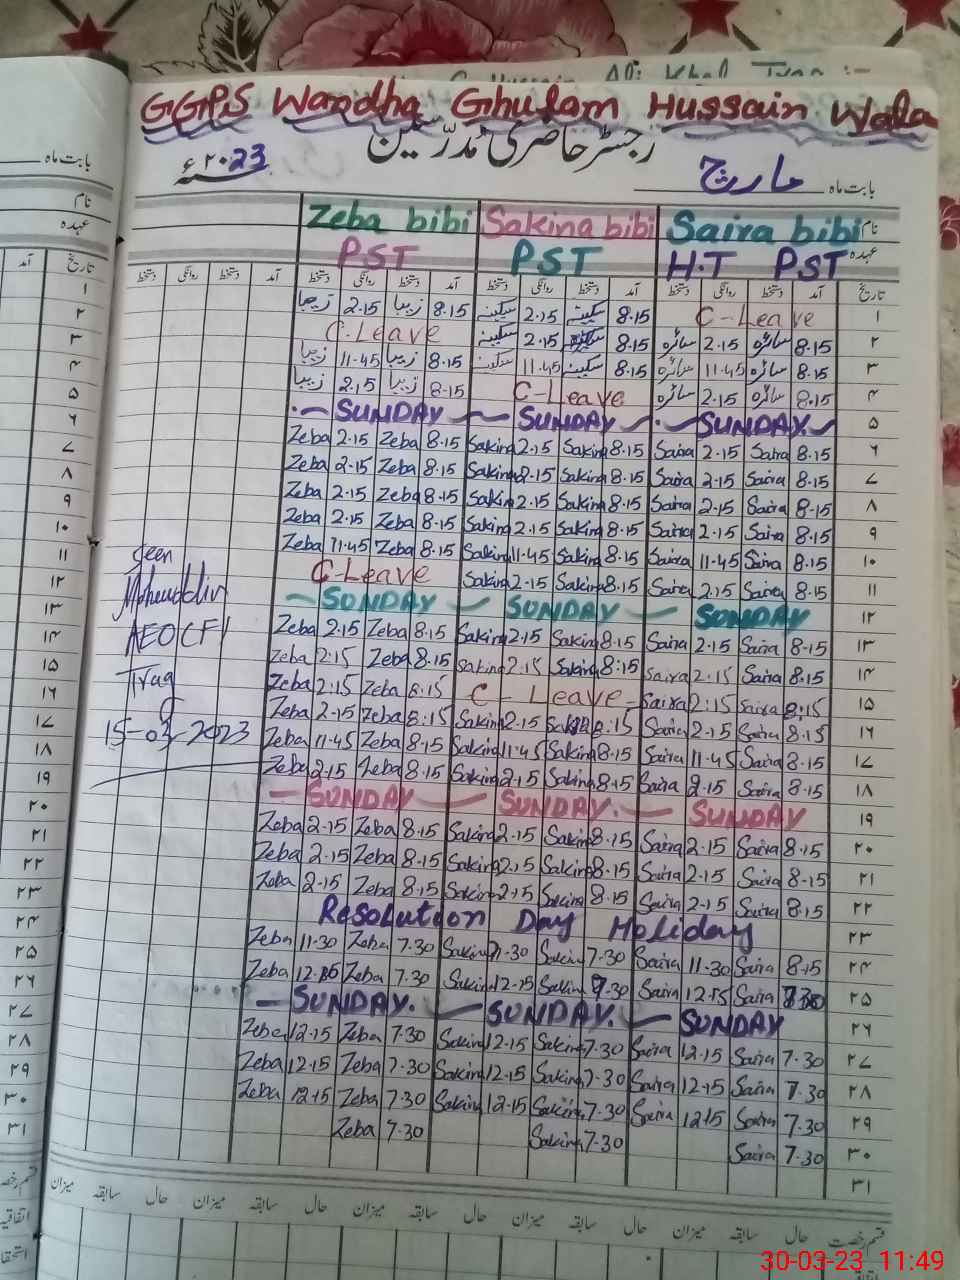 GGPS Wandha Ghulam Hussain Wala
رجسٹر حاضری مُدرّسین
بابت ماہ مارچ ۲۰23ء
بابت ماہ
نام Saira bibi Sakina bibi Zeba bibi
نام
عہدہ H.T PST PST PST
عہدہ
تاریخ آمد دستخط روانگی دستخط آمد دستخط روانگی دستخط آمد دستخط روانگی دستخط آمد دستخط روانگی دستخط
تاریخ آمد
۱ C-Leave 8.15 سکینہ 2.15 سکینہ 8.15 زیبا 2.15
۲ 8.15 سائرہ 2.15 سائرہ 8.15 2.15 سکینہ C.Leave
۳ 8.15 سائرہ 11.45 سائرہ 8.15 سکینہ 11.45 سکینہ 8.15 زیبا 11-45 زیبا
۴ 8.15 سائرہ 2.15 سائرہ C-Leave 8.15 زیبا 2.15 زیبا
۵ SUNDAY SUNDAY SUNDAY
۶ Zeba 2.15 Zeba 8.15 Sakina 2.15 Sakina 8.15 Saira 2.15 Saira 8.15
۷ Zeba 2.15 Zeba 8.15 Sakina 2.15 Sakina 8.15 Saira 2.15 Saira 8.15
۸ Zeba 2.15 Zeba 8.15 Sakina 2.15 Sakina 8.15 Saira 2.15 Saira 8.15
۹ Zeba 2.15 Zeba 8.15 Sakina 2.15 Sakina 8.15 Saira 2.15 Saira 8.15
۱۰ Zeba 11.45 Zeba 8.15 Sakina 11.45 Sakina 8.15 Saira 11.45 Saira 8.15
۱۱ C-Leave Sakina 2.15 Sakina 8.15 Saira 2.15 Saira 8.15
۱۲ SUNDAY SUNDAY SUNDAY
۱۳ Zeba 2.15 Zeba 8.15 Sakina 2.15 Sakina 8.15 Saira 2.15 Saira 8.15
۱۴ Zeba 2:15 Zeba 8.15 Sakina 2.15 Sakina 8:15 Saira 2:15 Saira 8.15
۱۵ Zeba 2:15 Zeba 8:15 C - Leave - Saira 2:15 Saira 8:15
۱۶ Zeba 2.15 Zeba 8:15 Sakina 2.15 8:15 Saira 2.15 Saira 8.15
۱۷ Zeba 11.45 Zeba 8.15 Sakina 11.45 Sakina 8.15 Saira 11.45 Saira 8.15
۱۸ Zeba 2.15 Zeba 8.15 Sakina 2.15 Sakina 8.15 Saira 2.15 Saira 8.15
۱۹ SUNDAY SUNDAY. SUNDAY
۲۰ Zeba 2-15 Zeba 8.15 Sakina 2.15 Sakina 8.15 Saira 2.15 Saira 8.15
۲۱ Zeba 2.15 Zeba 8.15 Sakina 2.15 Sakina 8.15 Saira 2.15 Saira 8.15
۲۲ Zeba 2-15 Zeba 8.15 Sakina 2.15 Sakina 8.15 Saira 2.15 Saira 8.15
۲۳ Resolution Day Holiday
۲۴ Zeba 11-30 Zeba 7.30 Sakina Sakina 7-30 Saira 11-30 Saira 8.15
۲۵ Zeba Zeba 7.30 Sakina 12-15 Sakina Saira 12.15 Saira
۲۶ SUNDAY. SUNDAY. SUNDAY
۲۷ Zeba 12.15 Zeba 7.30 Sakina 12.15 Sakina 7.30 Saira 12.15 Saira 7.30
۲۸ Zeba 12.15 Zeba 7.30 Sakina 12.15 Sakina 7.30 Saira 12.15 Saira 7.30
۲۹ Zeba 12.15 Zeba 7.30 Sakina 12.15 Sakina 7.30 Saira 12.15 Saira 7.30
۳۰ Zeba 7.30 Sakina 7.30 Saira 7.30
۳۱
seen
AEO(F)
15-03-2023
۱
۲
۳
۴
۵
۶
۷
۸
۹
۱۰
۱۱
۱۲
۱۳
۱۴
۱۵
۱۶
۱۷
۱۸
۱۹
۲۰
۲۱
۲۲
۲۳
۲۴
۲۵
۲۶
۲۷
۲۸
۲۹
۳۰
۳۱
قسم رخصت حال سابقہ میزان حال سابقہ میزان حال سابقہ میزان حال سابقہ میزان
30-03-23 11:49